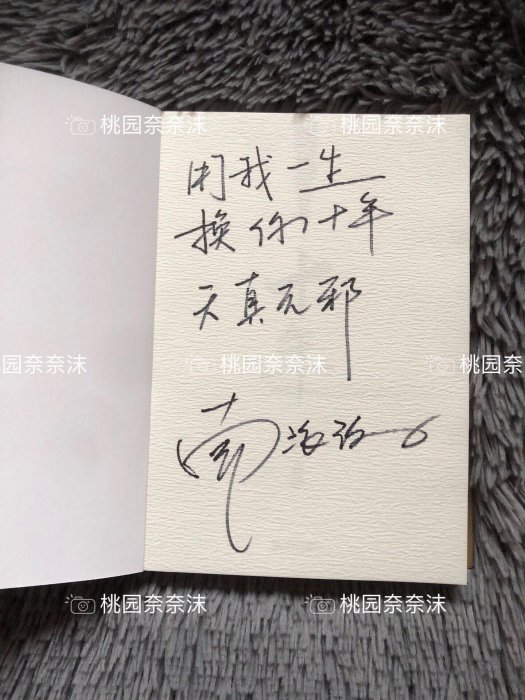 桃园奈奈沫 桃园奈奈沫
用我一生
换你十年
天真无邪
园奈奈沫 桃园奈奈沫 桃园
南派三叔
桃园奈奈沫 桃园奈奈沫